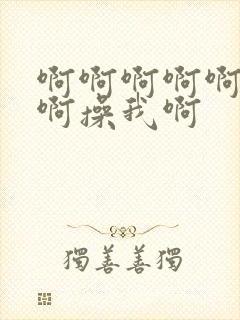 啊啊啊啊啊
啊操我啊
獨善善獨